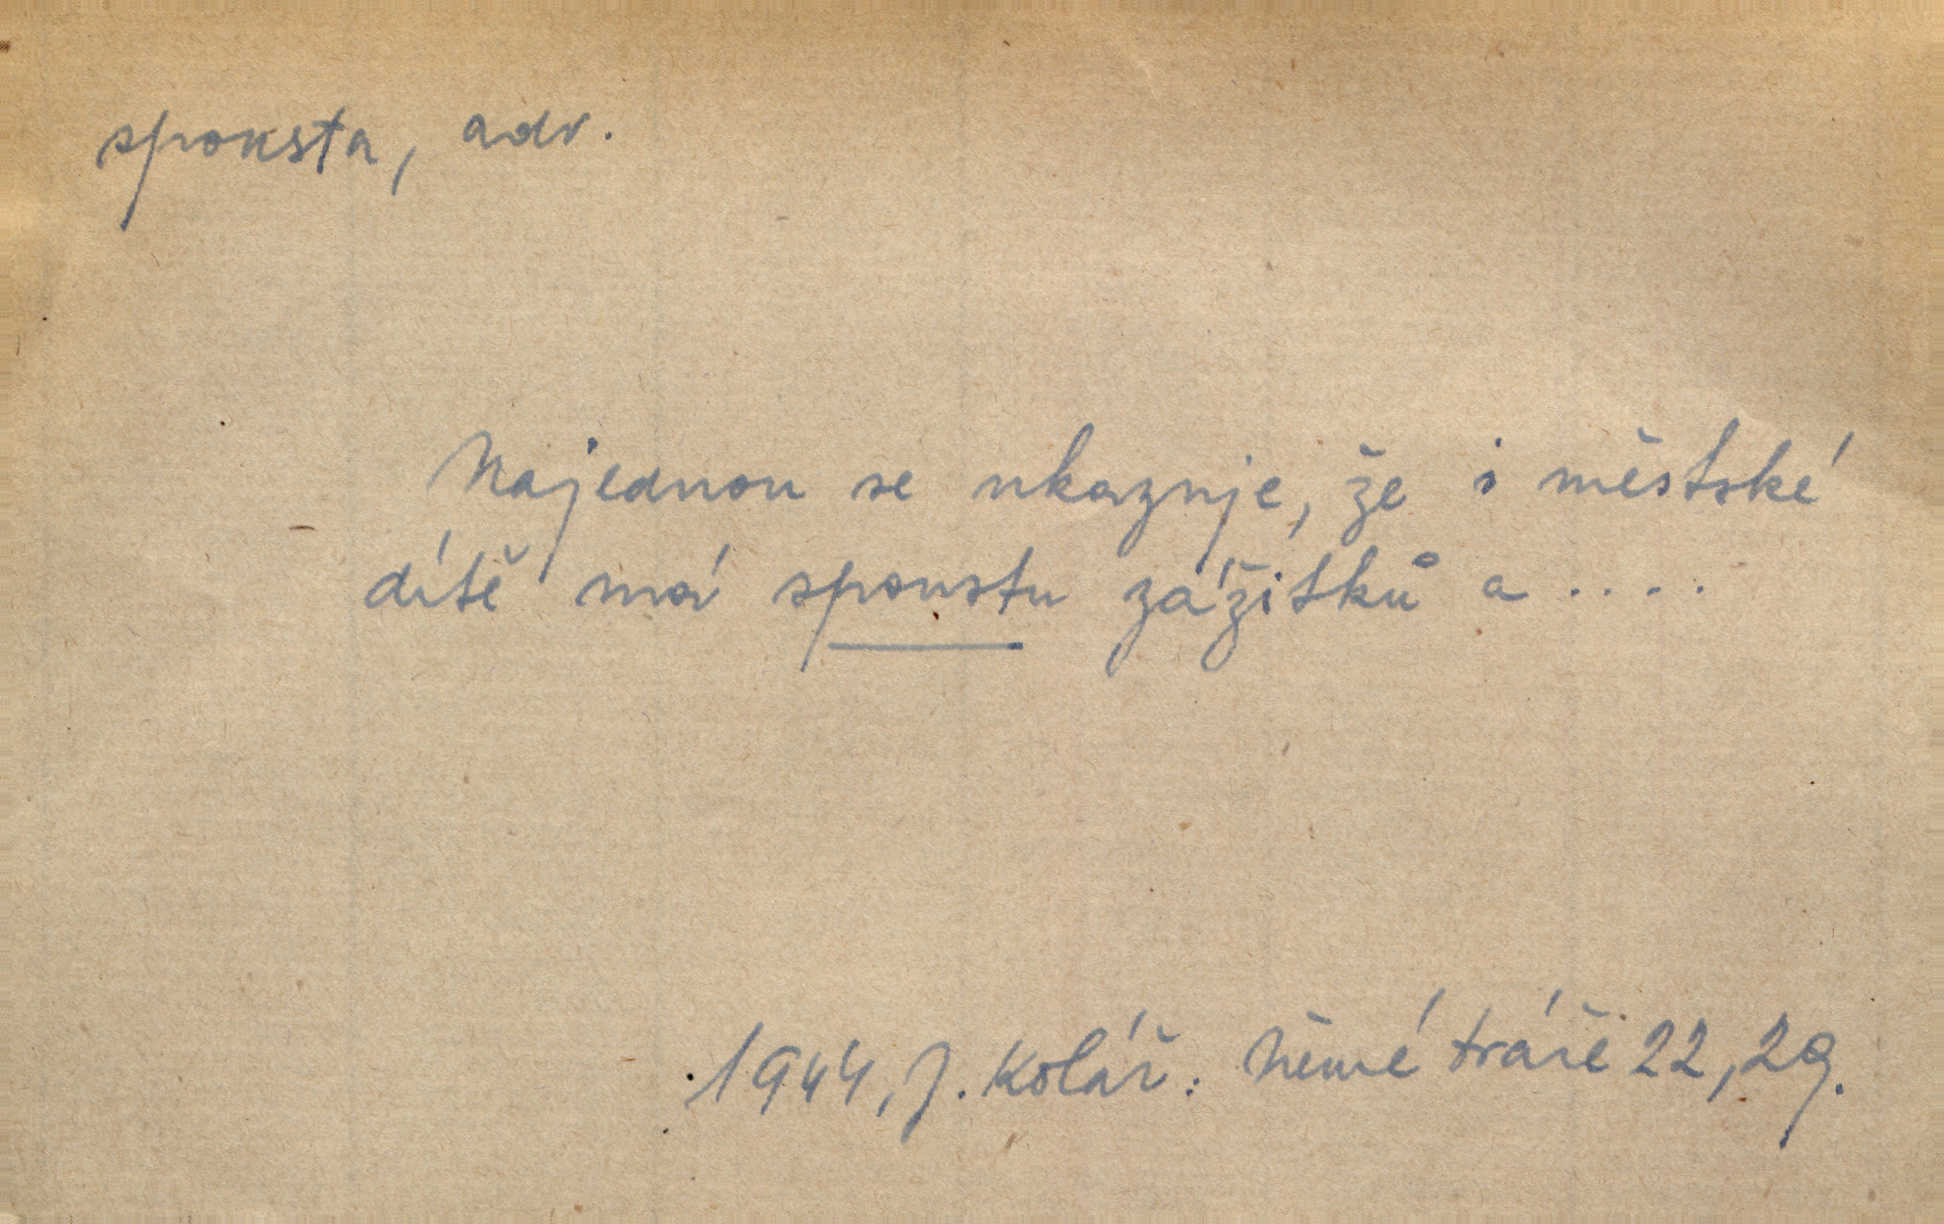 spousta, adv.
Najednou se ukazuje, že i městské
dítě má spoustu zážitků a ....
1944, J. Kolář: Němé tváře 22, 29.